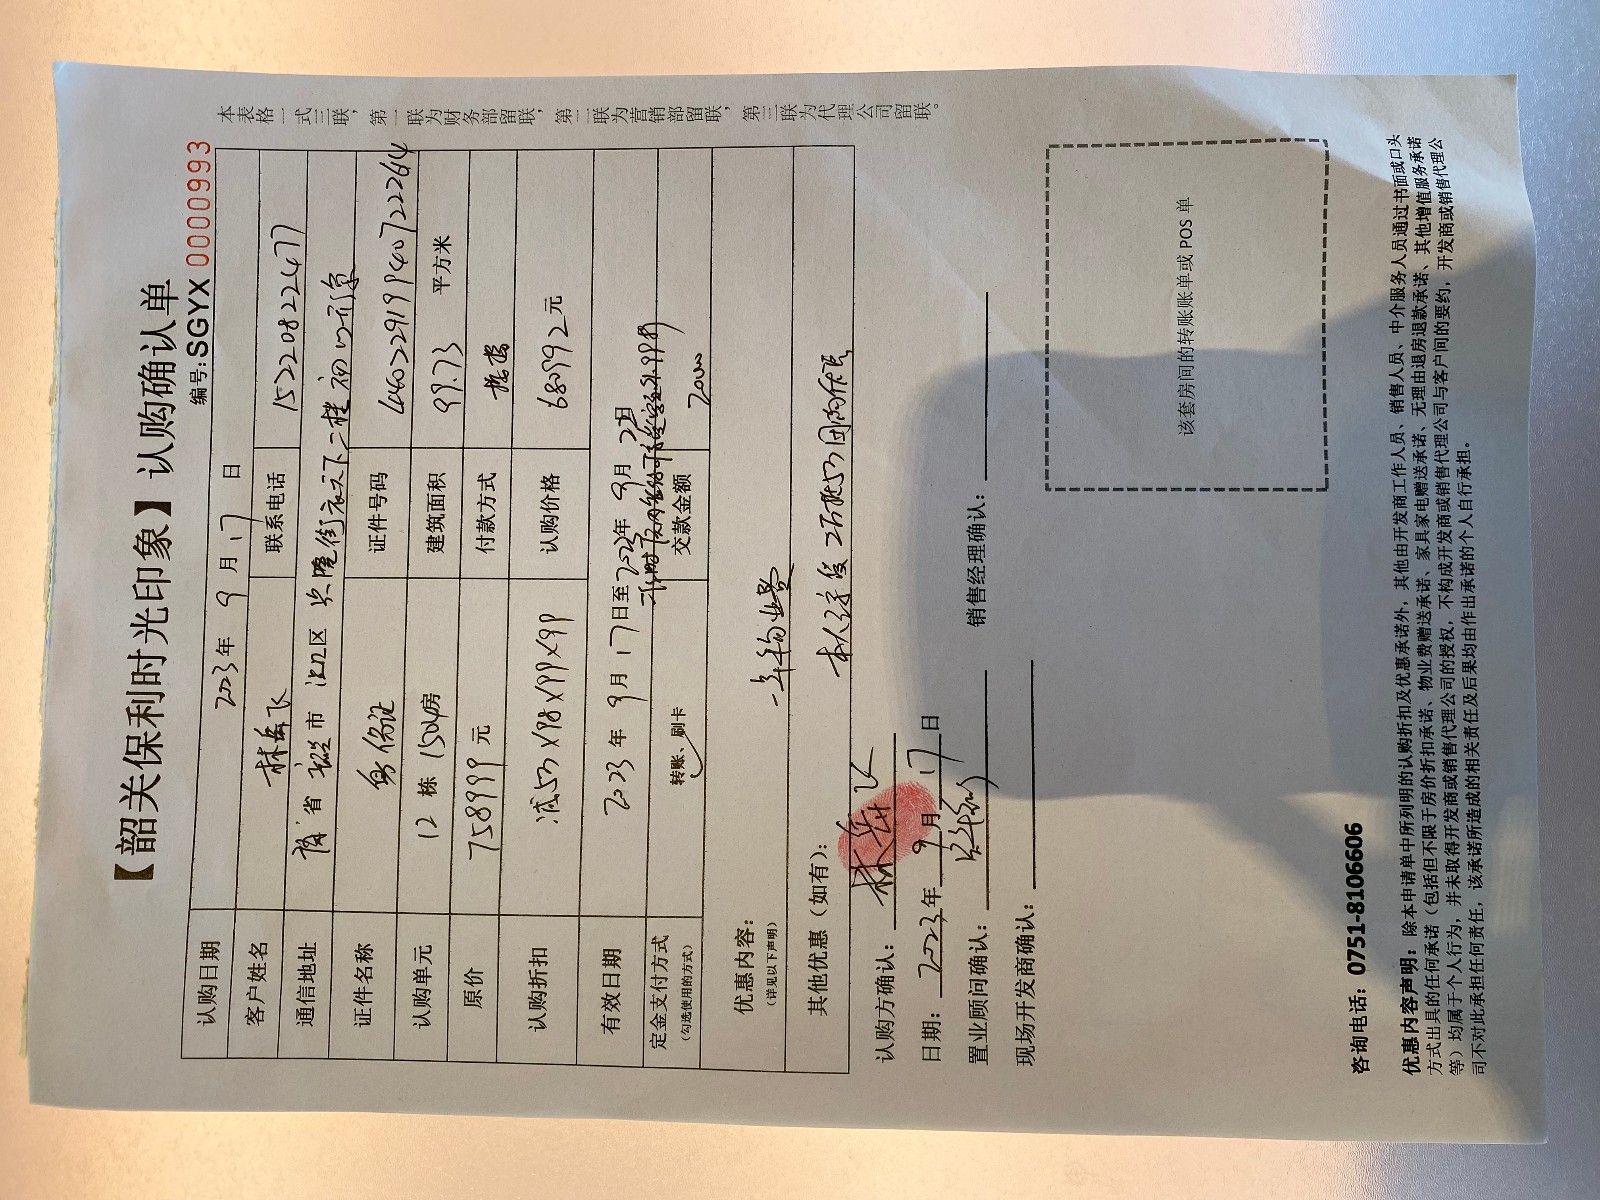 【韶关保利时光印象】认购确认单
编号:SGYX 0000993
认购日期 2023年 9 月 17 日
客户姓名 林岳飞 联系电话 15220822477
通信地址 省 韶关市 浈江区
证件名称 身份证 证件号码
认购单元 12 栋 1504房 建筑面积 99.73 平方米
原价 758999 元 付款方式 按揭
认购折扣 认购价格 680992元
有效日期 2023 年 9 月 17日至2023年 9月 日
定金支付方式 转账、刷卡 交款金额
(勾选使用的方式)
优惠内容: 一年物业费
(详见以下声明)
其他优惠(如有):
本表格一式三联,第一联为财务部留联,第二联为营销部留联,第三联为代理公司留联。
认购方确认: 林岳飞
日期: 2023年 9月 17日
置业顾问确认: 销售经理确认:
现场开发商确认:
该套房间的转账账单或 POS 单
咨询电话: 0751-8106606
优惠内容声明: 除本申请单中所列明的认购折扣及优惠承诺外,其他由开发商工作人员、销售人员、中介服务人员通过书面或口头
方式出具的任何承诺(包括但不限于房价折扣承诺、物业费赠送承诺、家具家电赠送承诺、无理由退房退款承诺、其他增值服务承诺
等)均属于个人行为,并未取得开发商或销售代理公司的授权,不构成开发商或销售代理公司与客户间的要约,开发商或销售代理公
司不对此承担任何责任,该承诺所造成的相关责任及后果均由作出承诺的个人自行承担。